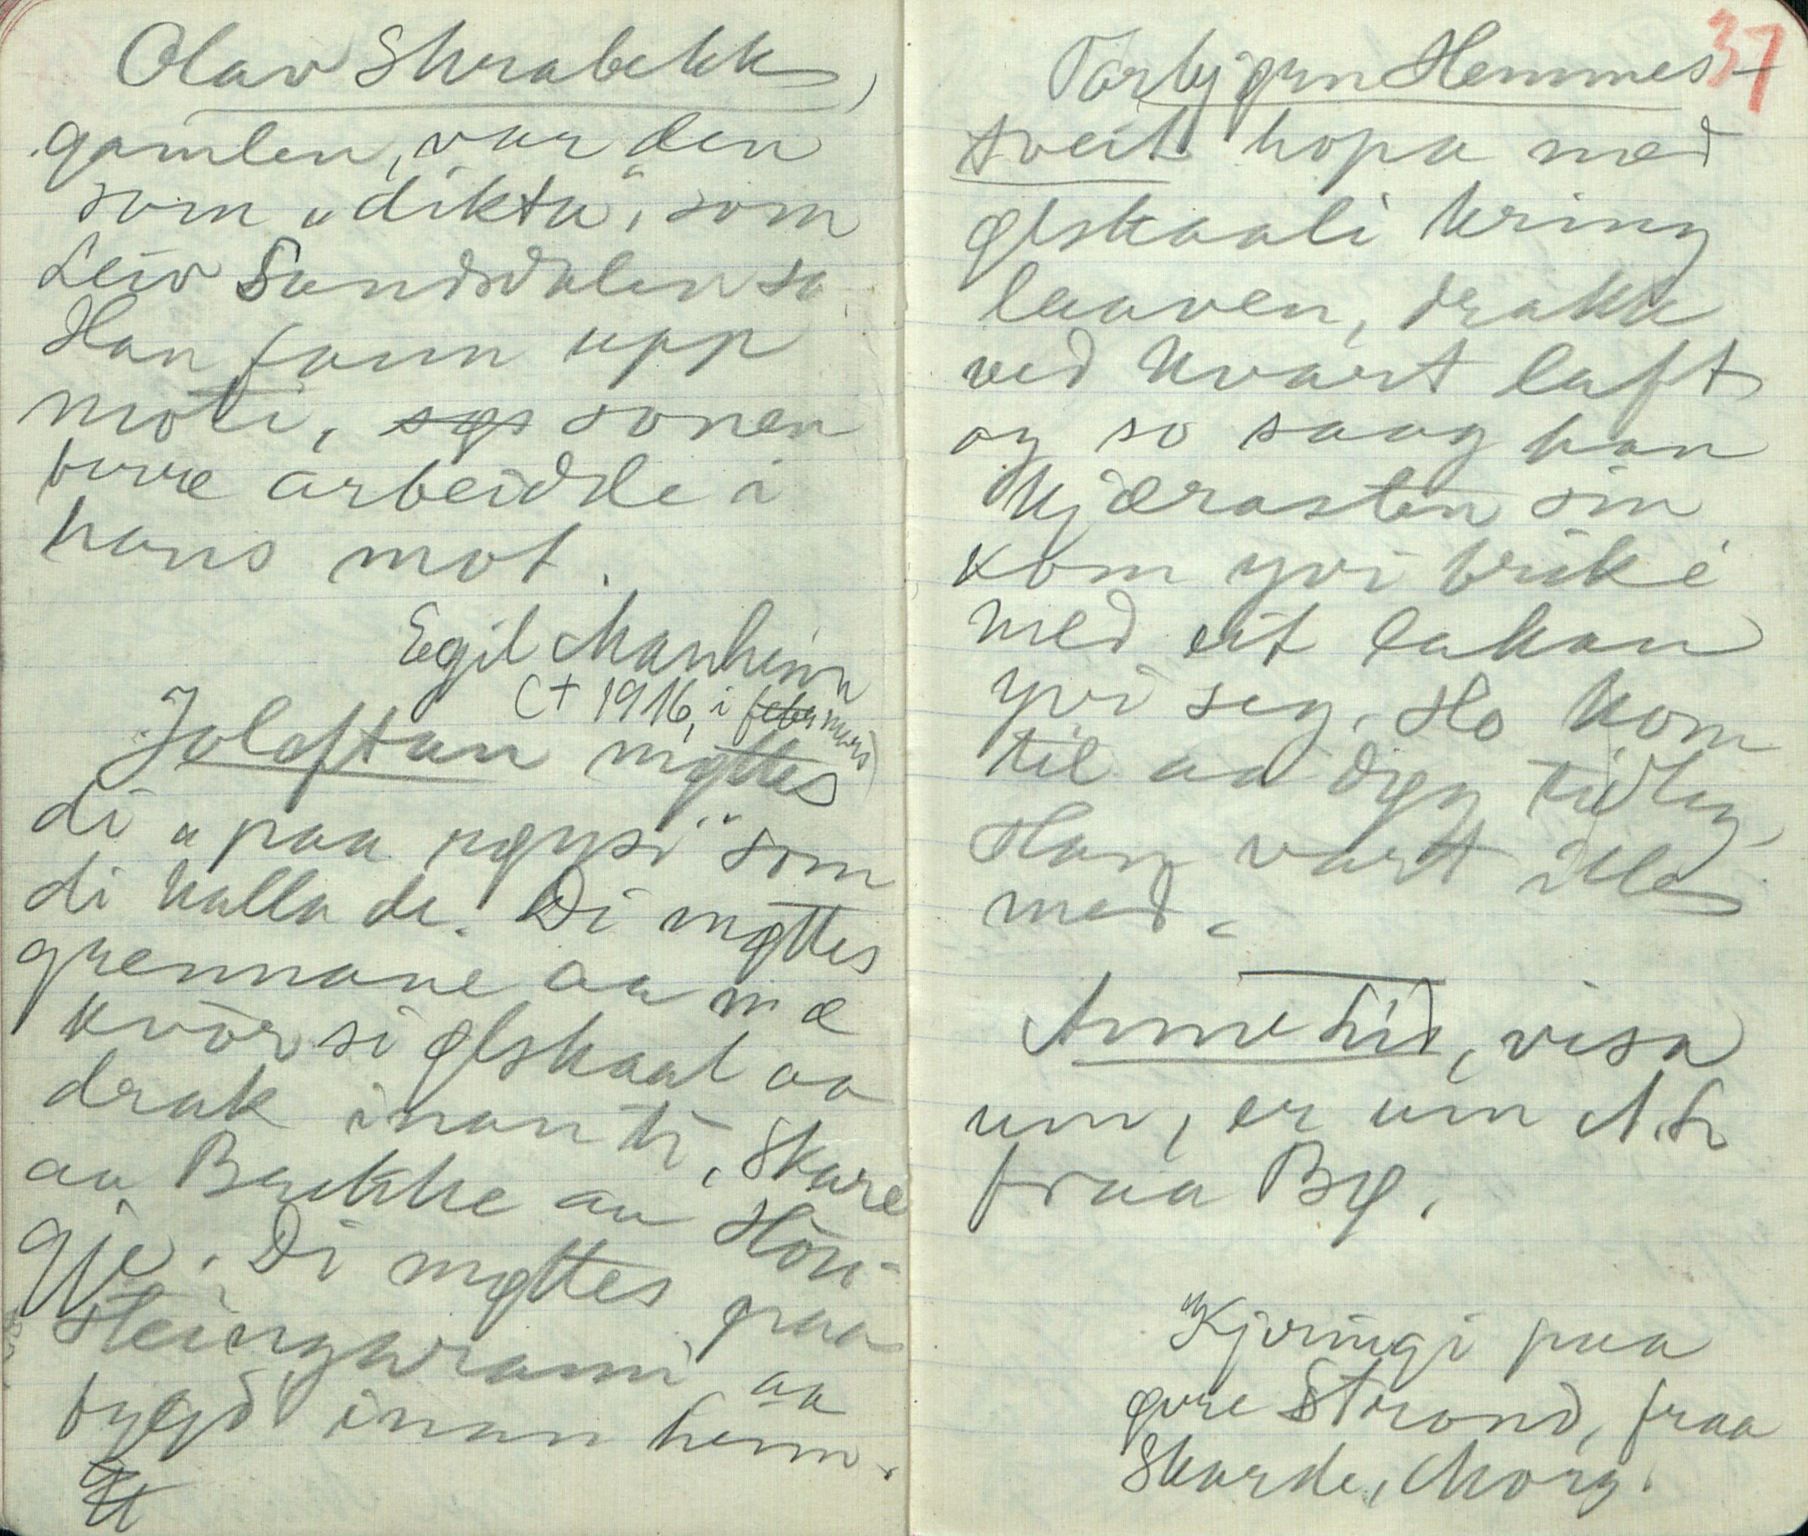 Olav Skrabekk,
gamlen, var den
som "dikta", som
Leiv Sundsdalen sa
Han fann upp
moti, sgs sonen
berre arbeidde i
hans mot.
Egil Manheim
(+ 1916, i febr mars)
Joleftan møttes
di "paa røysi" som
di kalla de. Di møttes
grennane aa mæ
kvòr si ølskaal aa
drak inan ti, Skare
aa Bakkhe aa Høri-
gje. Di møttes paa
Steingkrami aa
bygd' inan heim.
37
Torbjørn Hemmes-
tveit hopa med
ølskaali kring
laaven, drakk
ved kvart laft
og so saag han
kjærasten sin
kom yvi brik é
med eit lakan
yvi seg. Ho kom
til aa døy tidleg,
Han vart illes
med.
Anne Lid, visa
um, er um A. L.
fraa Bø.
"Kjeringi paa
øvre Strond, fraa
Skarde, Morg.